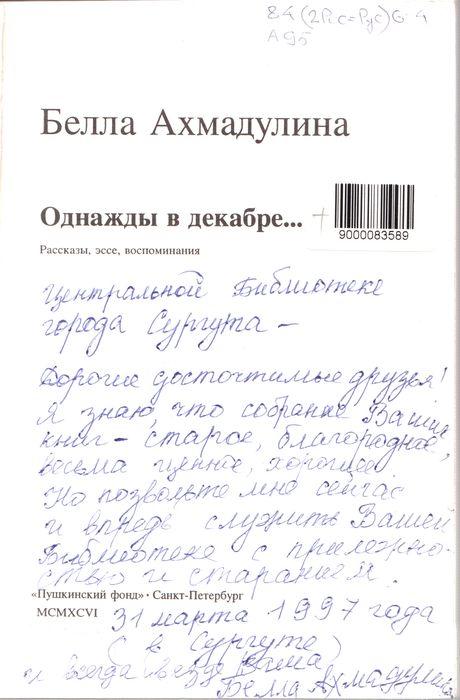 84(2Рос=Рус)6-4
А95
Белла Ахмадулина
Однажды в декабре...
9000083589
Рассказы, эссе, воспоминания
Центральной Библиотеке
города Сургута –
Дорогие досточтимые друзья!
Я знаю, что собрание Ваших
книг – старое, благородное,
весьма ценное, хорошее
Но позвольте мне сейчас
и впредь служить Вашей
Библиотеке с прилежно-
стью и старанием.
«Пушкинский фонд» · Санкт-Петербург
MCMXCVI
31 марта 1997 года
(в Сургуте)
и всегда везде Ваша
Белла Ахмадулина